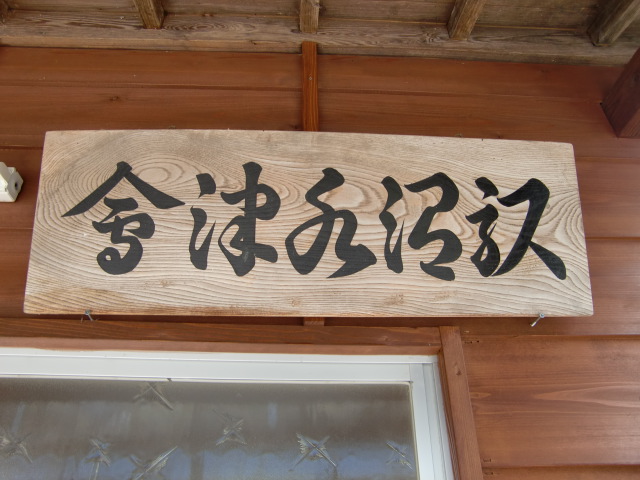 會津水沼駅